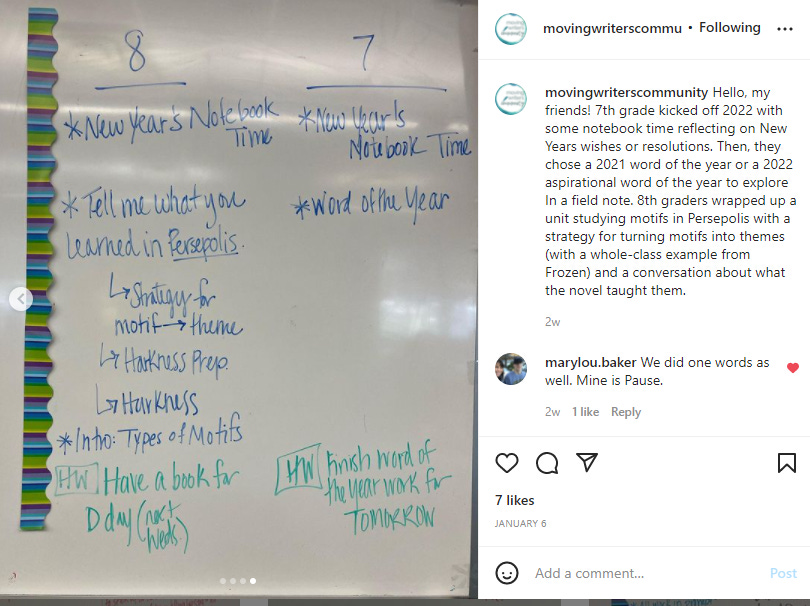 8
7
*New Year's Notebook
Time
*New Year's
Notebook Time
*Tell me what you
learned in Persepolis.
*Word of the Year
↳Strategy for
motif→theme
↳Harkness Prep.
↳Harkness
*Intro: Types of Motifs
HW Have a book for
D day (next
Weds.)
HW Finish word of
the year work for
TOMORROW
movingwriterscommu • Following ...
movingwriterscommunity Hello, my
friends! 7th grade kicked off 2022 with
some notebook time reflecting on New
Years wishes or resolutions. Then, they
chose a 2021 word of the year or a 2022
aspirational word of the year to explore
In a field note. 8th graders wrapped up a
unit studying motifs in Persepolis with a
strategy for turning motifs into themes
(with a whole-class example from
Frozen) and a conversation about what
the novel taught them.
2w
marylou.baker We did one words as
well. Mine is Pause.
2w 1 like Reply
7 likes
JANUARY 6
Add a comment... Post